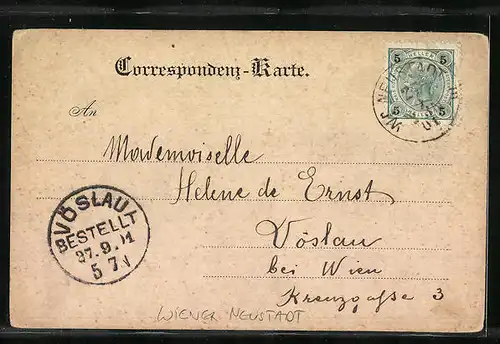 Correspondenz-Karte.
5 5
5 5
W. NEUSTADT
An
Mademoiselle
Helene de Ernst
Vöslau
bei Wien
Kreuzgasse 3
VÖSLAU
BESTELLT
27.9.01
5 7.N
WIENER NEUSTADT